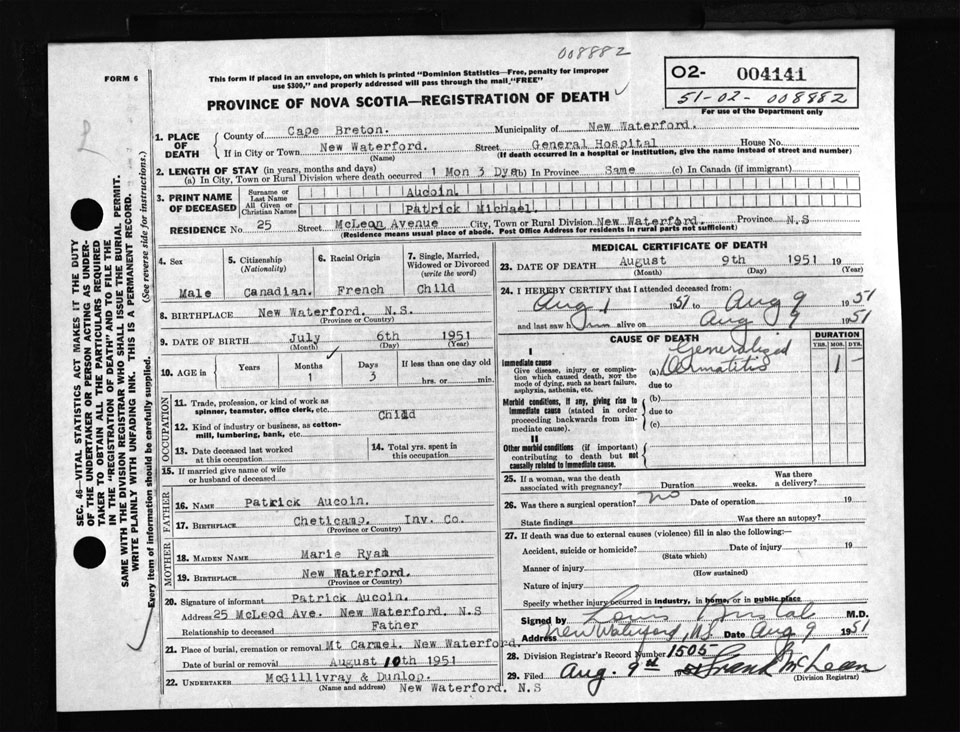 008882
FORM 6
This form if placed in an envelope, on which is printed "Dominion Statistics—Free, penalty for improper
use $300," and properly addressed will pass through the mail "FREE"
02- 004141
51-02- 008882
For use of the Department only
PROVINCE OF NOVA SCOTIA—REGISTRATION OF DEATH
SEC. 46—VITAL STATISTICS ACT MAKES IT THE DUTY
OF THE UNDERTAKER OR PERSON ACTING AS UNDER-
TAKER TO OBTAIN ALL THE PARTICULARS REQUIRED
IN THE "REGISTRATION OF DEATH" AND TO FILE THE
SAME WITH THE DIVISION REGISTRAR WHO SHALL ISSUE THE BURIAL PERMIT.
WRITE PLAINLY WITH UNFADING INK. THIS IS A PERMANENT RECORD.
Every item of information should be carefully supplied. (See reverse side for instructions.)
1. PLACE OF DEATH County of Cape Breton. Municipality of New Waterford.
If in City or Town New Waterford. Street General Hospital House No.
(Name) (If death occurred in a hospital or institution, give the name instead of street and number)
2. LENGTH OF STAY (in years, months and days)
(a) In City, Town or Rural Division where death occurred 1 Mon 3 Dys (b) In Province Same (c) In Canada (if immigrant)
3. PRINT NAME OF DECEASED Surname or Last Name Aucoin.
All Given or Christian Names Patrick Michael
RESIDENCE No. 25 Street McLeon Avenue City, Town or Rural Division New Waterford. Province N.S
(Residence means usual place of abode. Post Office Address for residents in rural parts not sufficient)
4. Sex 5. Citizenship (Nationality) 6. Racial Origin 7. Single, Married, Widowed or Divorced (write the word)
Male Canadian. French Child
8. BIRTHPLACE New Waterford. N.S.
(Province or Country)
9. DATE OF BIRTH July 6th 1951
(Month) (Day) (Year)
10. AGE in Years Months Days If less than one day old
1 3 hrs. or min.
OCCUPATION
11. Trade, profession, or kind of work as
spinner, teamster, office clerk, etc. Child
12. Kind of industry or business, as cotton-
mill, lumbering, bank, etc.
13. Date deceased last worked at this occupation 14. Total yrs. spent in this occupation
15. If married give name of wife
or husband of deceased
FATHER
16. Name Patrick Aucoin.
17. Birthplace Cheticamp. Inv. Co.
(Province or Country)
MOTHER
18. MAIDEN NAME Marie Ryan
19. BIRTHPLACE New Waterford.
(Province or Country)
20. Signature of informant Patrick Aucoin.
Address 25 McLeod Ave. New Waterford. N.S
Relationship to deceased Father
21. Place of burial, cremation or removal Mt Carmel. New Waterford.
Date of burial or removal August 10th 1951
22. UNDERTAKER McGillivray & Dunlop.
(Name and address) New Waterford. N.S
MEDICAL CERTIFICATE OF DEATH
23. DATE OF DEATH August 9th 1951 19
(Month) (Day) (Year)
24. I HEREBY CERTIFY that I attended deceased from:
Aug 1 1951 to Aug 9 1951
and last saw him alive on Aug 9 1951
CAUSE OF DEATH DURATION
YRS. MOS. DYS.
I
Immediate cause
Give disease, injury or complica-
tion which caused death, not the
mode of dying, such as heart failure,
asphyxia, asthenia, etc.
(a) Generalized Dermatitis 1 —
due to
Morbid conditions, if any, giving rise to
immediate cause (stated in order
proceeding backwards from im-
mediate cause).
(b)
due to
(c)
II
Other morbid conditions (if important)
contributing to death but not
causally related to immediate cause.
25. If a woman, was the death
associated with pregnancy? Duration weeks. Was there a delivery?
26. Was there a surgical operation? no Date of operation 19
State findings Was there an autopsy?
27. If death was due to external causes (violence) fill in also the following:—
Accident, suicide or homicide? Date of injury 19
(State which)
Manner of injury
(How sustained)
Nature of injury
Specify whether injury occurred in industry, in home, or in public place
Signed by M.D.
Address New Waterford, N.S. Date Aug 9 1951
28. Division Registrar's Record Number 1505
29. Filed Aug. 9th 1951 Frank McLean
(Division Registrar)